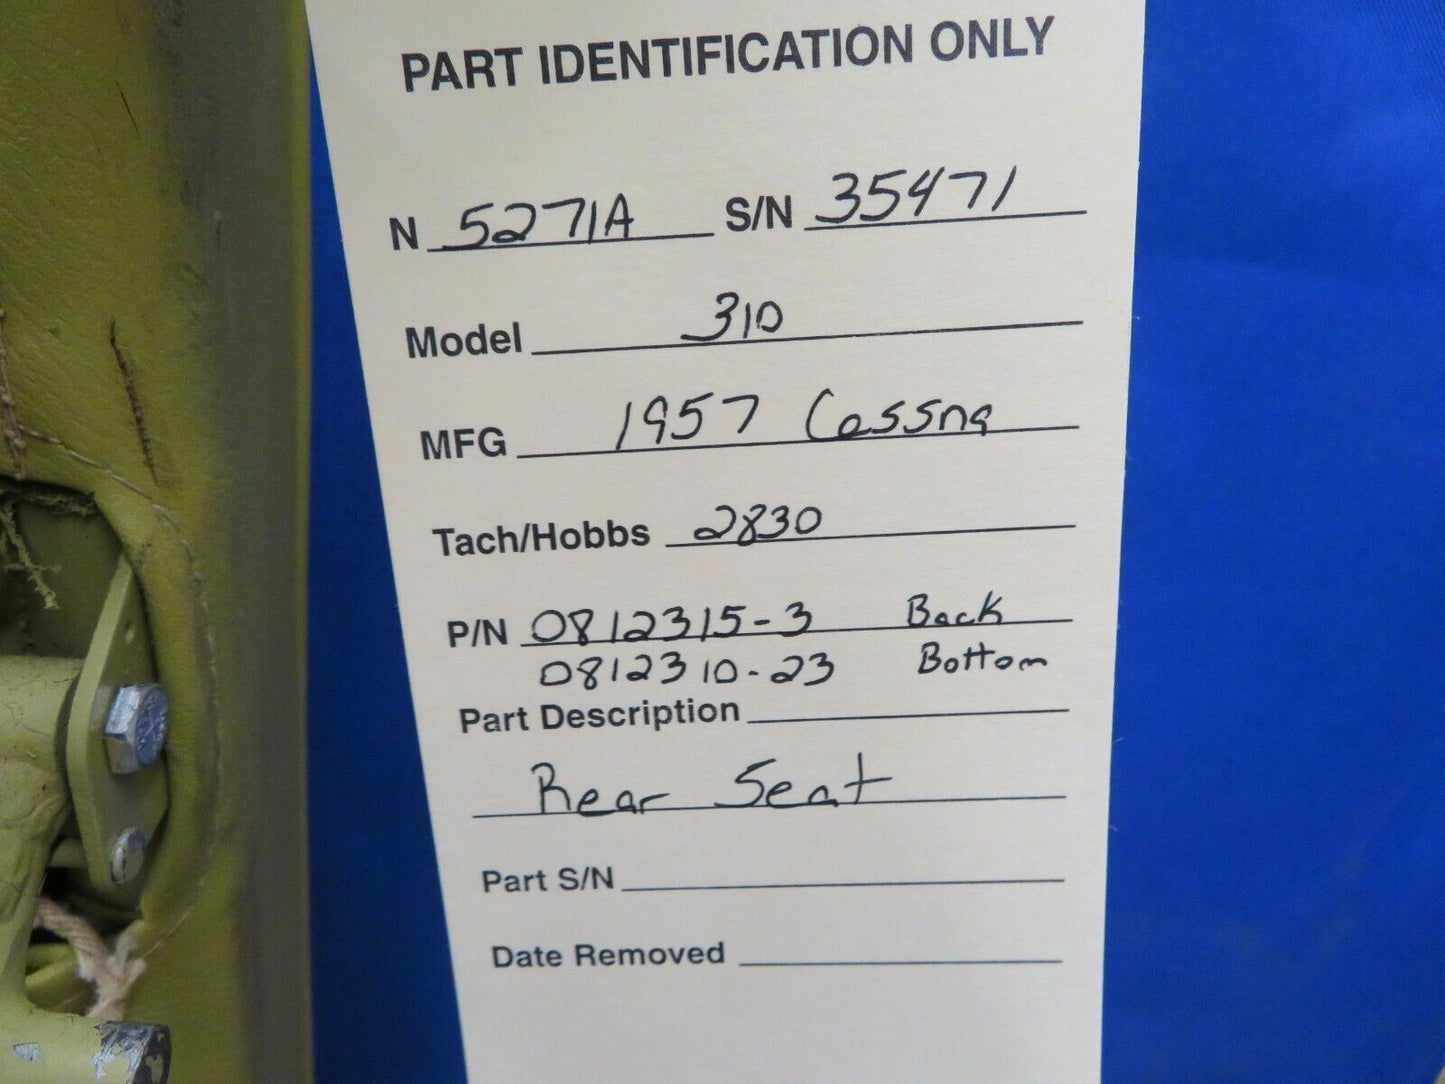 PART IDENTIFICATION ONLY
N 5271A S/N 35471
Model 310
MFG 1957 Cessna
Tach/Hobbs 2830
P/N 0812315-3 Back
0812310-23 Bottom
Part Description
Rear Seat
Part S/N
Date Removed